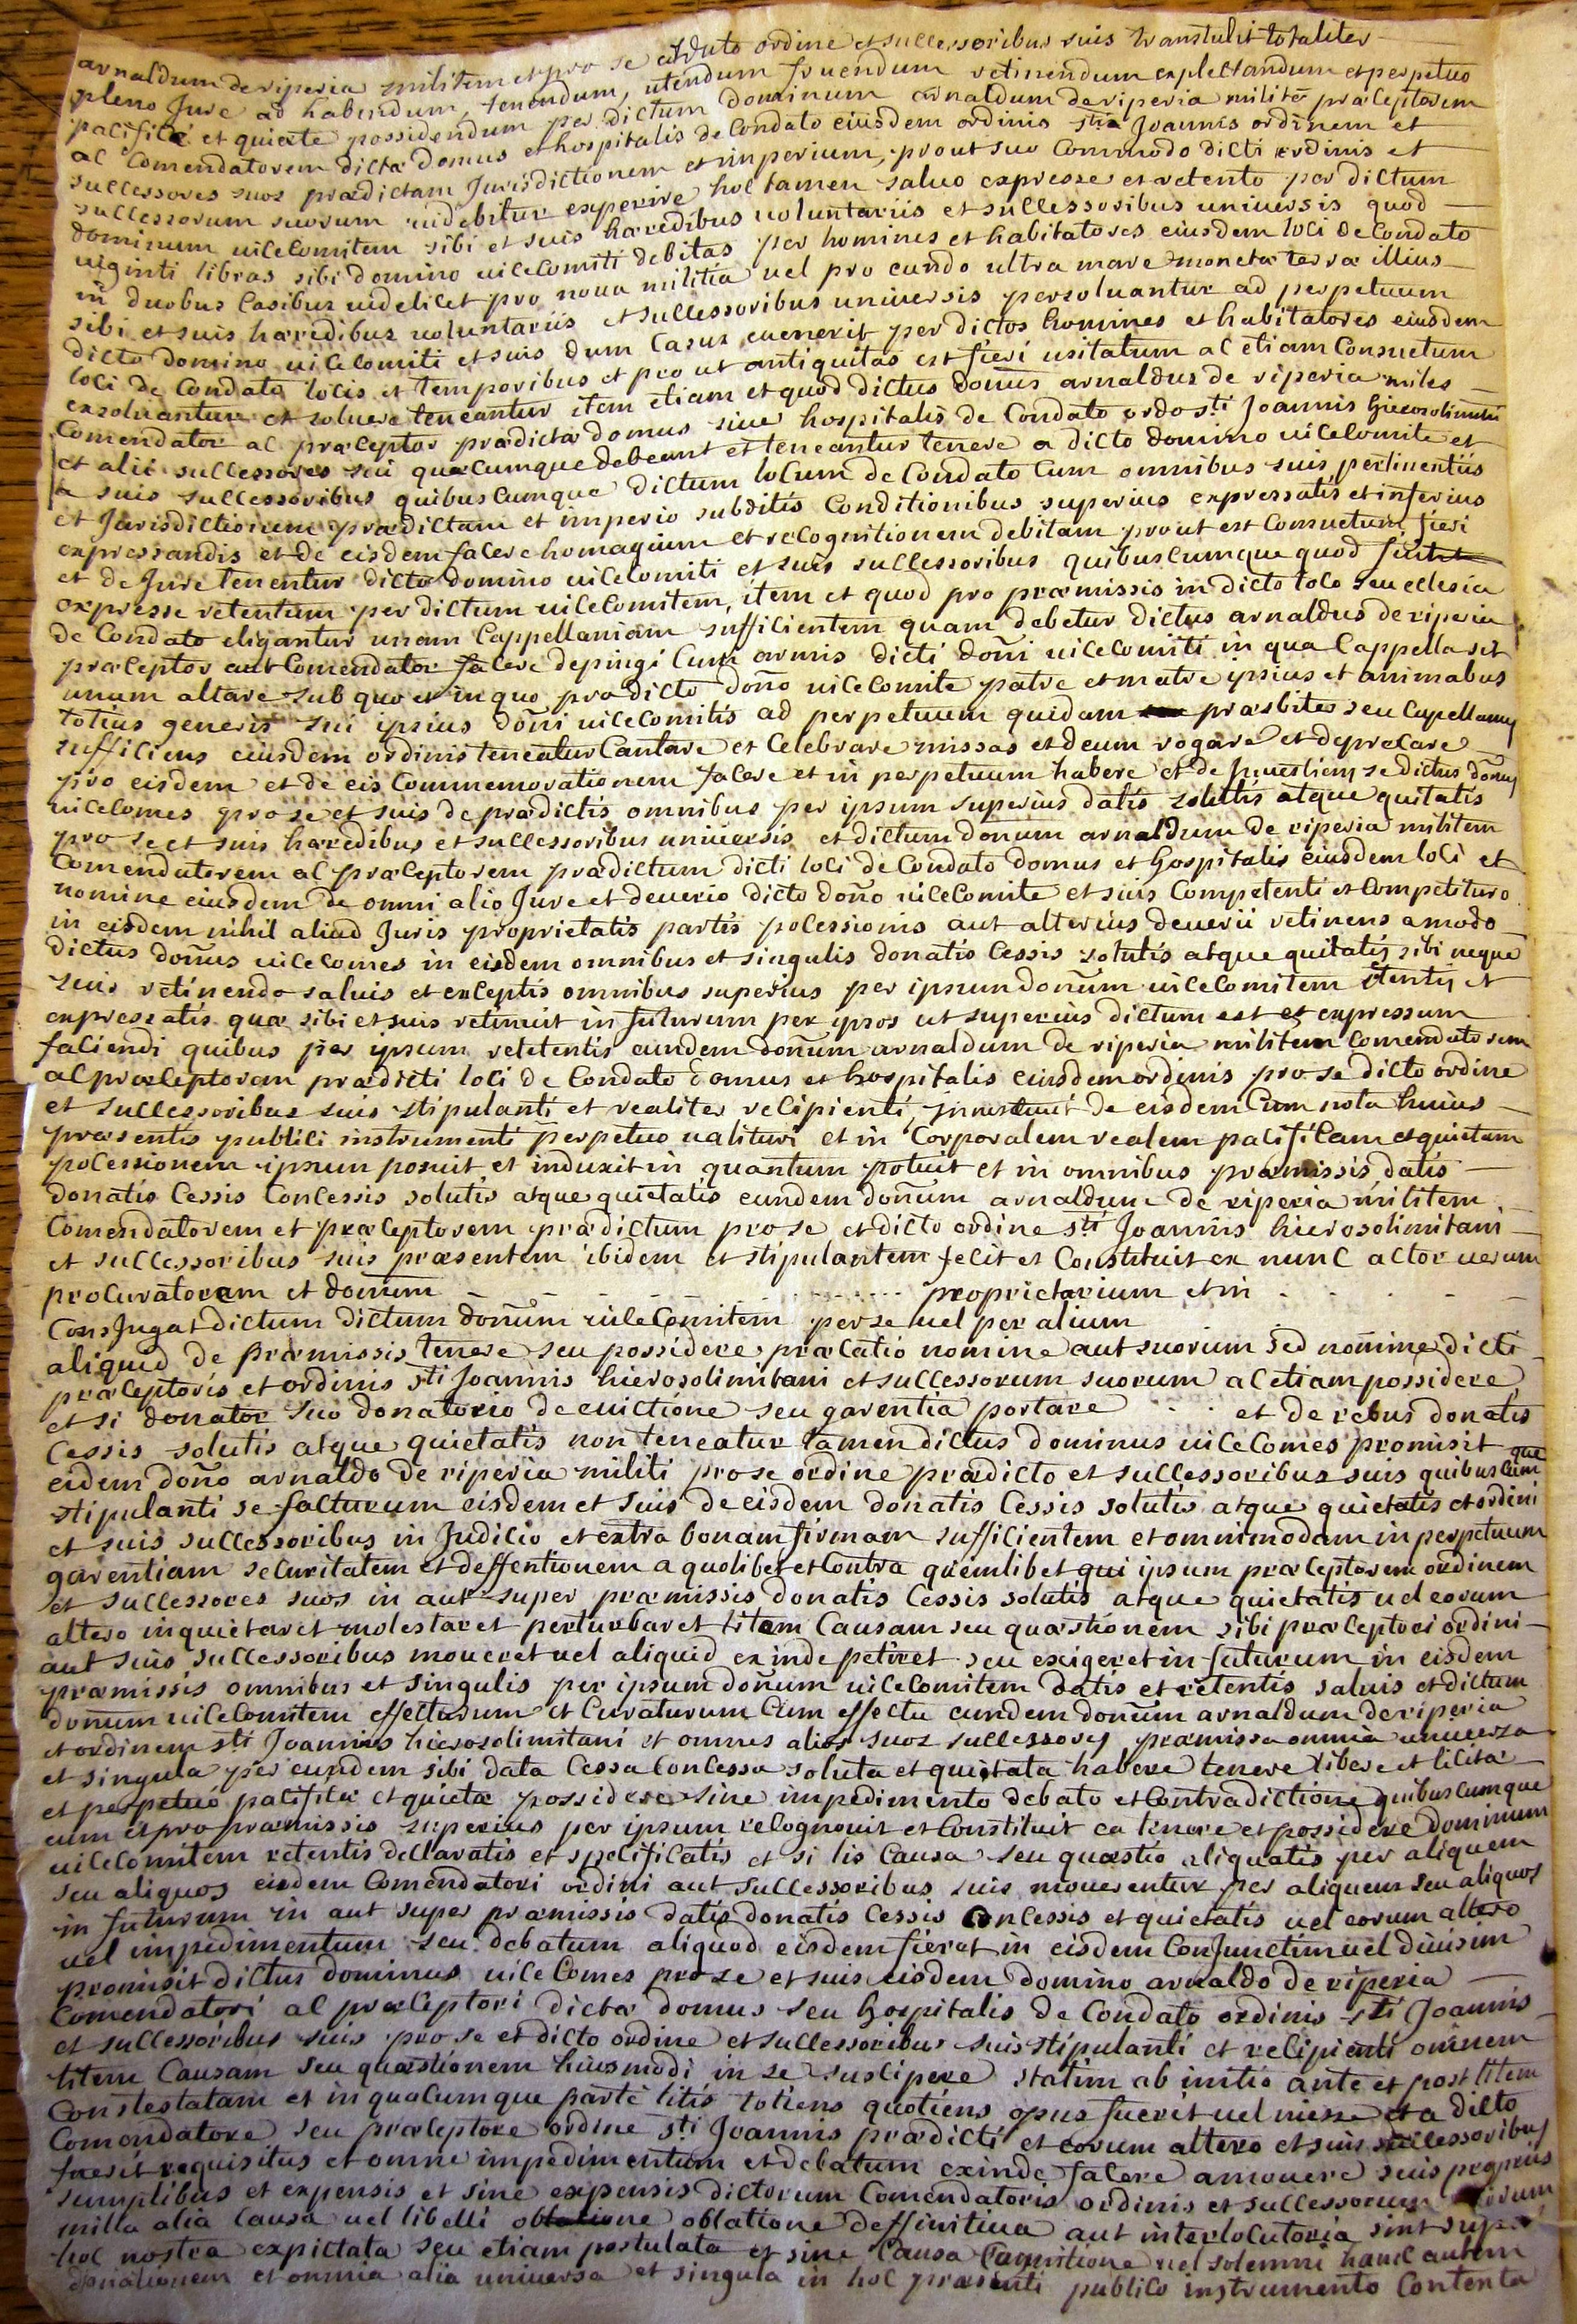 arnaldum de riperia militem et pro se et dicto ordine et successoribus suis transtulit totaliter
pleno Jure ad habendum, tenendum, utendum fruendum retinendum explectandum et perpetuo
pacifice et quiete possidendum per dictum dominum arnaldum de riperia milite præceptorem
ac comendatorem dictæ domus et hospitalis de Condato eiusdem ordinis sti Joannis ordinem et
successores suos prædictam Jurisdictionem et imperium, prout suo commodo dicti ordinis et
successorum suorum uidebitur experire hoc tamen saluo expresse et retento per dictum
dominum uicecomitem sibi et suis hæredibus uoluntariis et successoribus uniuersis quod
uiginti libras sibi domino uicecomiti debitas per homines et habitatores eiusdem loci de Condato
in duobus Casibus uidelicet pro noua militia uel pro eundo ultra mare monetæ terræ illius
sibi et suis hæredibus uoluntariis et successoribus uniuersis persoluantur ad perpetuum
dicto domino uicecomiti et suis dum Casus euenerit per dictos homines et habitatores eiusdem
loci de Condato locis et temporibus et pro ut antiquitas est fieri usitatum ac etiam Consuetum
exsoluantur et soluere teneantur item etiam et quod dictus donus arnaldus de riperia miles
Comendator ac præceptor prædictæ domus siue hospitalis de Condato ordo sti Joannis hierosolimitani
et alii successores sui quæcumque debeant et teneantur tenere a dicto domino uicecomite et
a suis successoribus quibuscumque dictum locum de Condato Cum omnibus suis pertinentiis
et Jurisdictionem prædictam et imperio subditis Conditionibus superius expressatis et inferius
expressandis et de eisdem facere homagium et recognitionem debitam prout est Consuetum fieri
et de Jure tenentur dicto domino uicecomiti et suis successoribus quibuscumque quod
expresse retentum per dictum uicecomitem, item et quod pro præmissis in dicto loco seu eclesia
de Condato eligantur unam Cappellaniam sufficientem quam debetur dictus arnaldus de riperia
præceptor aut Comendator facere depingi Cum armis dicti doni uicecomiti in qua Cappella sit
unum altare sub quo et in quo pro dicto dono uicecomite patre et matre ipsius et animabus
totius generis sui ipsius doni uicecomitis ad perpetuum quidam præsbiter seu Capellanus
sufficiens eiusdem ordinis teneatur Cantare et Celebrare missas et deum rogare et deprecare
pro eisdem et de eis Commemorationem facere et in perpetuum habere et de se dictus donus
uicecomes pro se et suis de prædictis omnibus per ipsum superius datis solutis atque quitatis
pro se et suis hæredibus et successoribus uniuersis et dictum donum arnaldum de riperia militem
Comendatorem ac præceptorem prædictum dicti loci de Condato domus et hospitalis eiusdem loci et
nomine eiusdem de omni alio Jure et deuerio dicto dono uicecomite et suis Competenti et Competituro
in eisdem nihil aliud Juris proprietatis partis pocessionis aut alterius deuerii retinens amodo
dictus donus uicecomes in eisdem omnibus et singulis donatis Cessis solutis atque quitatis sibi neque
suis retinendo saluis et exceptis omnibus superius per ipsum donum uicecomitem et
expressatis quæ sibi et suis retinuit in futurum per ipsos ut superius dictum est et expressum
faciendi quibus per ipsum retetentis eundem donum arnaldum de riperia militem Comendatorem
ac præceptorem prædicti loci de Condato domus et hospitalis eiusdem ordinis pro se dicto ordine
et successoribus suis stipulanti et realiter recipienti, inuestiuit de eisdem Cum nota huius
præsentis publici instrumenti perpetuo ualituri et in Corporalem realem pacificam et quietam
pocessionem ipsum posuit et induxit in quantum potuit et in omnibus præmissis datis
donatis Cessis Concessis solutis atque quietatis eundem donum arnaldum de riperia militem
Comendatorem et præceptorem prædictum pro se et dicto ordine sti Joannis hierosolimitani
et successoribus suis præsentem ibidem et stipulantem fecit et Constituit ex nunc actor uerum
procuratorem et donum - - - - ...... proprietarium et in - - - -
Consjugat dictum dictum donum uicecomitem per se uel per alium
aliquid de præmissis tenere seu possidere, præcatio nomine aut suorum sed nomine dicti
præceptoris et ordinis sti Joannis hierosolimitani et successorum suorum ac etiam possidere
et si donator suo donatorio de euictione seu garentia portare . . . et de rebus donatis
Cessis solutis atque quietatis non teneatur tamen dictus dominus uicecomes promisit
eidem dono arnaldo de riperia militi pro se ordine prædicto et successoribus suis quibuscumque
stipulanti se facturum eisdem et suis de eisdem donatis Cessis solutis atque quietatis et ordini
et suis successoribus in Judicio et extra bonam firmam sufficientem et omnimodam in perpetuum
garentiam securitatem et deffentionem a quolibet et Contra quemlibet qui ipsum præceptorem ordinem
et successores suos in aut super præmissis donatis Cessis solutis atque quietatis uel eorum
altero inquietaret molestaret perturbaret litem Causam seu quæstionem sibi præceptori ordini
aut suis successoribus moueret uel aliquid exinde petiret seu exigeret in futurum in eisdem
præmissis omnibus et singulis per ipsum donum uicecomitem datis et retentis saluis et dictum
donum uicecomitem effecturum et Curaturum Cum effectu eundem donum arnaldum de riperia
et ordinem sti Joannis hierosolimitani et omnes alios suos successores præmissa omnia uniuersa
et singula per eundem sibi data Cessa Concessa soluta et quietata habere tenere libere et licite
et perpetuo pacifice et quiete possidere sine impedimento debato et Contradictione quibuscumque
cum et pro præmissis superius per ipsum recognouit et Constituit ea tenere et possidere dominum
uicecomitem retentis declaratis et specificatis et si lis Causa seu quæstio aliquatis per aliquem
seu aliquos eisdem Comendatori ordini aut successoribus suis mouerentur per aliquem seu aliquos
in futurum in aut super præmissis datis donatis Cessis Concessis et quietatis uel eorum altero
uel impedimentum seu debatum aliquod eisdem fieret in eisdem Conjunctim uel diuisim
promisit dictus dominus uicecomes pro se et suis eisdem domino arnaldo de riperia
Comendatori ac præceptori dictæ domus seu hospitalis de Condato ordinis sti Joannis
et successoribus suis pro se et dicto ordine et successoribus suis stipulanti et recipienti omnem
litem Causam seu quæstionem huiusmodi in se suscipere statim ab initio ante et post litem
Constestatam et in quacumque parte litis totiens quotiens opus fuerit uel niesse et a dicto
Comendatore seu præceptore ordine sti Joannis prædicti et eorum altero et suis successoribus
fuerit requisitus et omne impedimentum et debatum exinde facere amouere suis propriis
sumptibus et expensis et sine expensis dictorum Comendatoris ordinis et successorum suorum
nulla alia Causa uel libelli oblatione deffinitiua aut interlocutoria sint super
hoc nostra expictata seu etiam postulata et sine Causa Cognitione uel solemni hanc autem
donationem et omnia alia uniuersa et singula in hoc præsenti publico instrumento Contenta